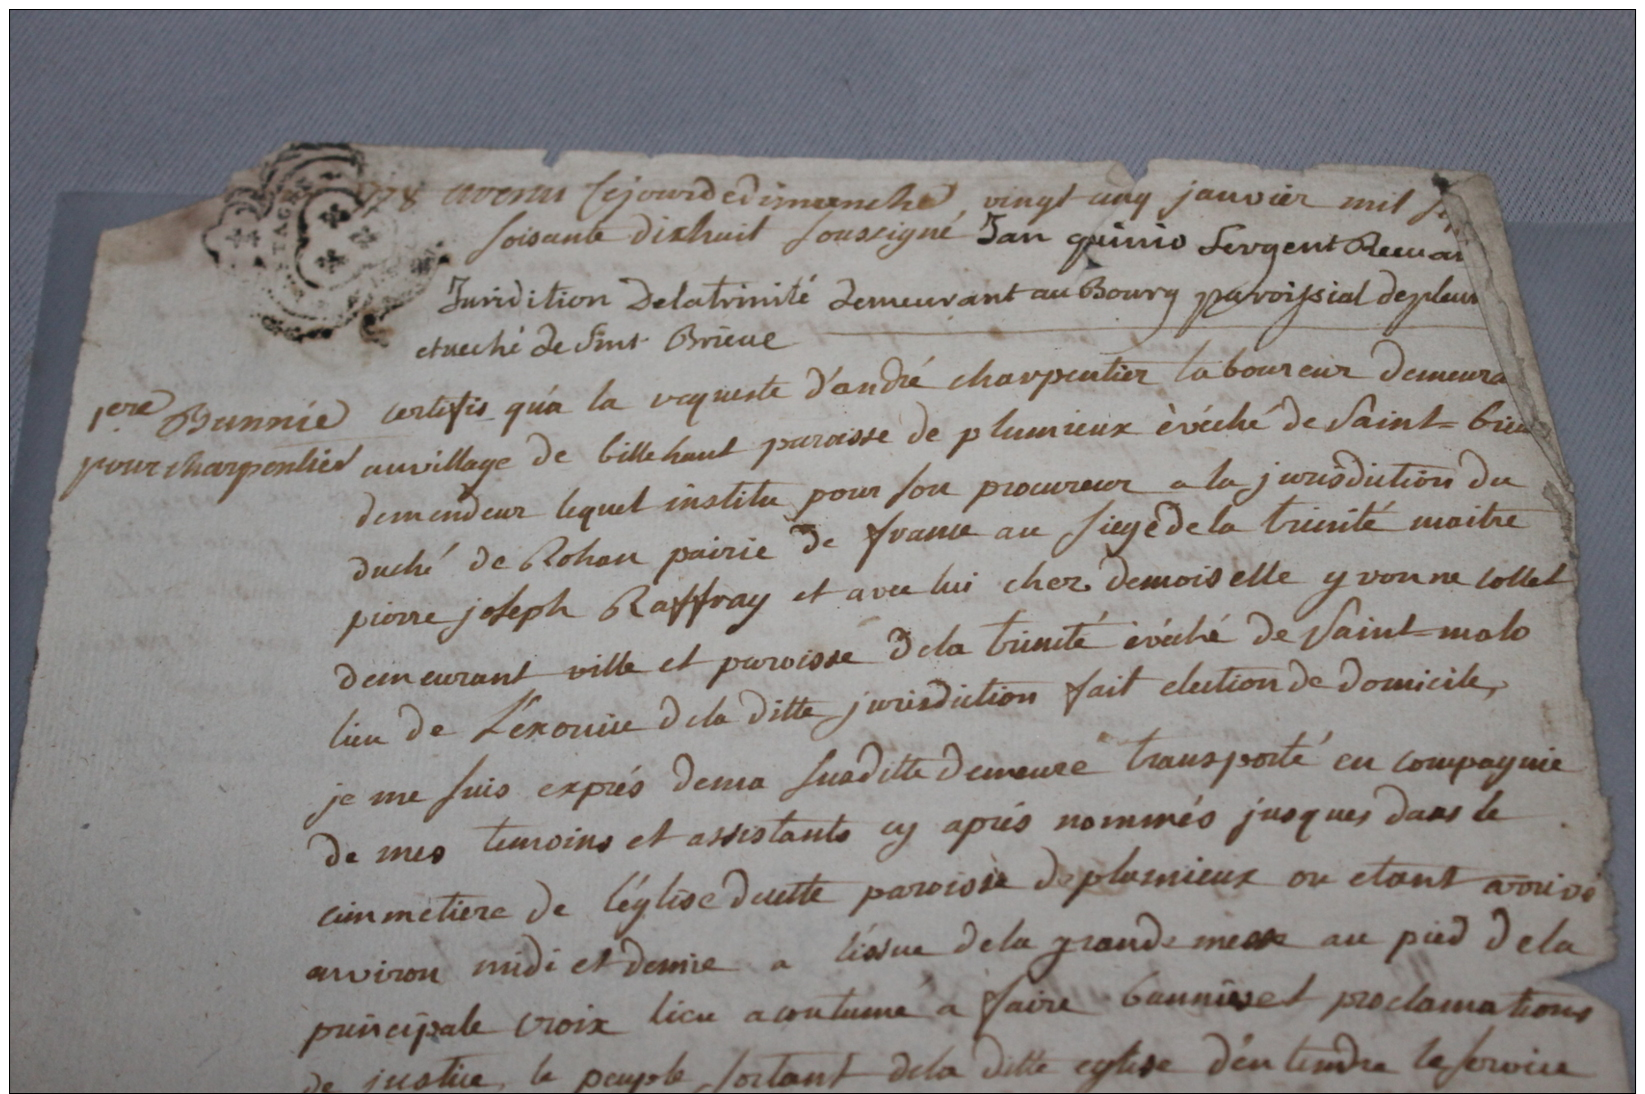 TAGNE
78 avenu le jour de dimanche vingt cinq janvier mil
soisante dixhuit soussigné Jan quinio Sergent
Juridition De la trinité demeurant au Bourg paroissial de
eveché de Sint Brieue
1ere Bannie certifis qu'a la requeste d'andré charpentier laboureur demeura
pour charpentier au village de billehaut paroisse de plumieux évéché de Saint=brieu
demendeur lequel institu pour son procureur a la jurisdiction du
duché de Rohan pairie de france au siege de la trinité maitre
pierre joseph Raffray et avec lui chez demoiselle yvonne collet
demeurant ville et paroisse de la trinité évéché de Saint=malo
lieu de L'exercice de la ditte jurisdiction fait election de domicile,
je me suis exprés de ma susditte demeure transporté en compagnie
de mes temoins et assistants cy aprés nommés jusques dans le
cimmetiere de l'église de cette paroisse de plumieux ou etant arrivé
anviron midi et demie a l'issue de la grande messe au pied de la
principale croix lieu acoutumé a faire bannies et proclamations
de justice, le peuple sortant de la ditte eglise d'entendre le service